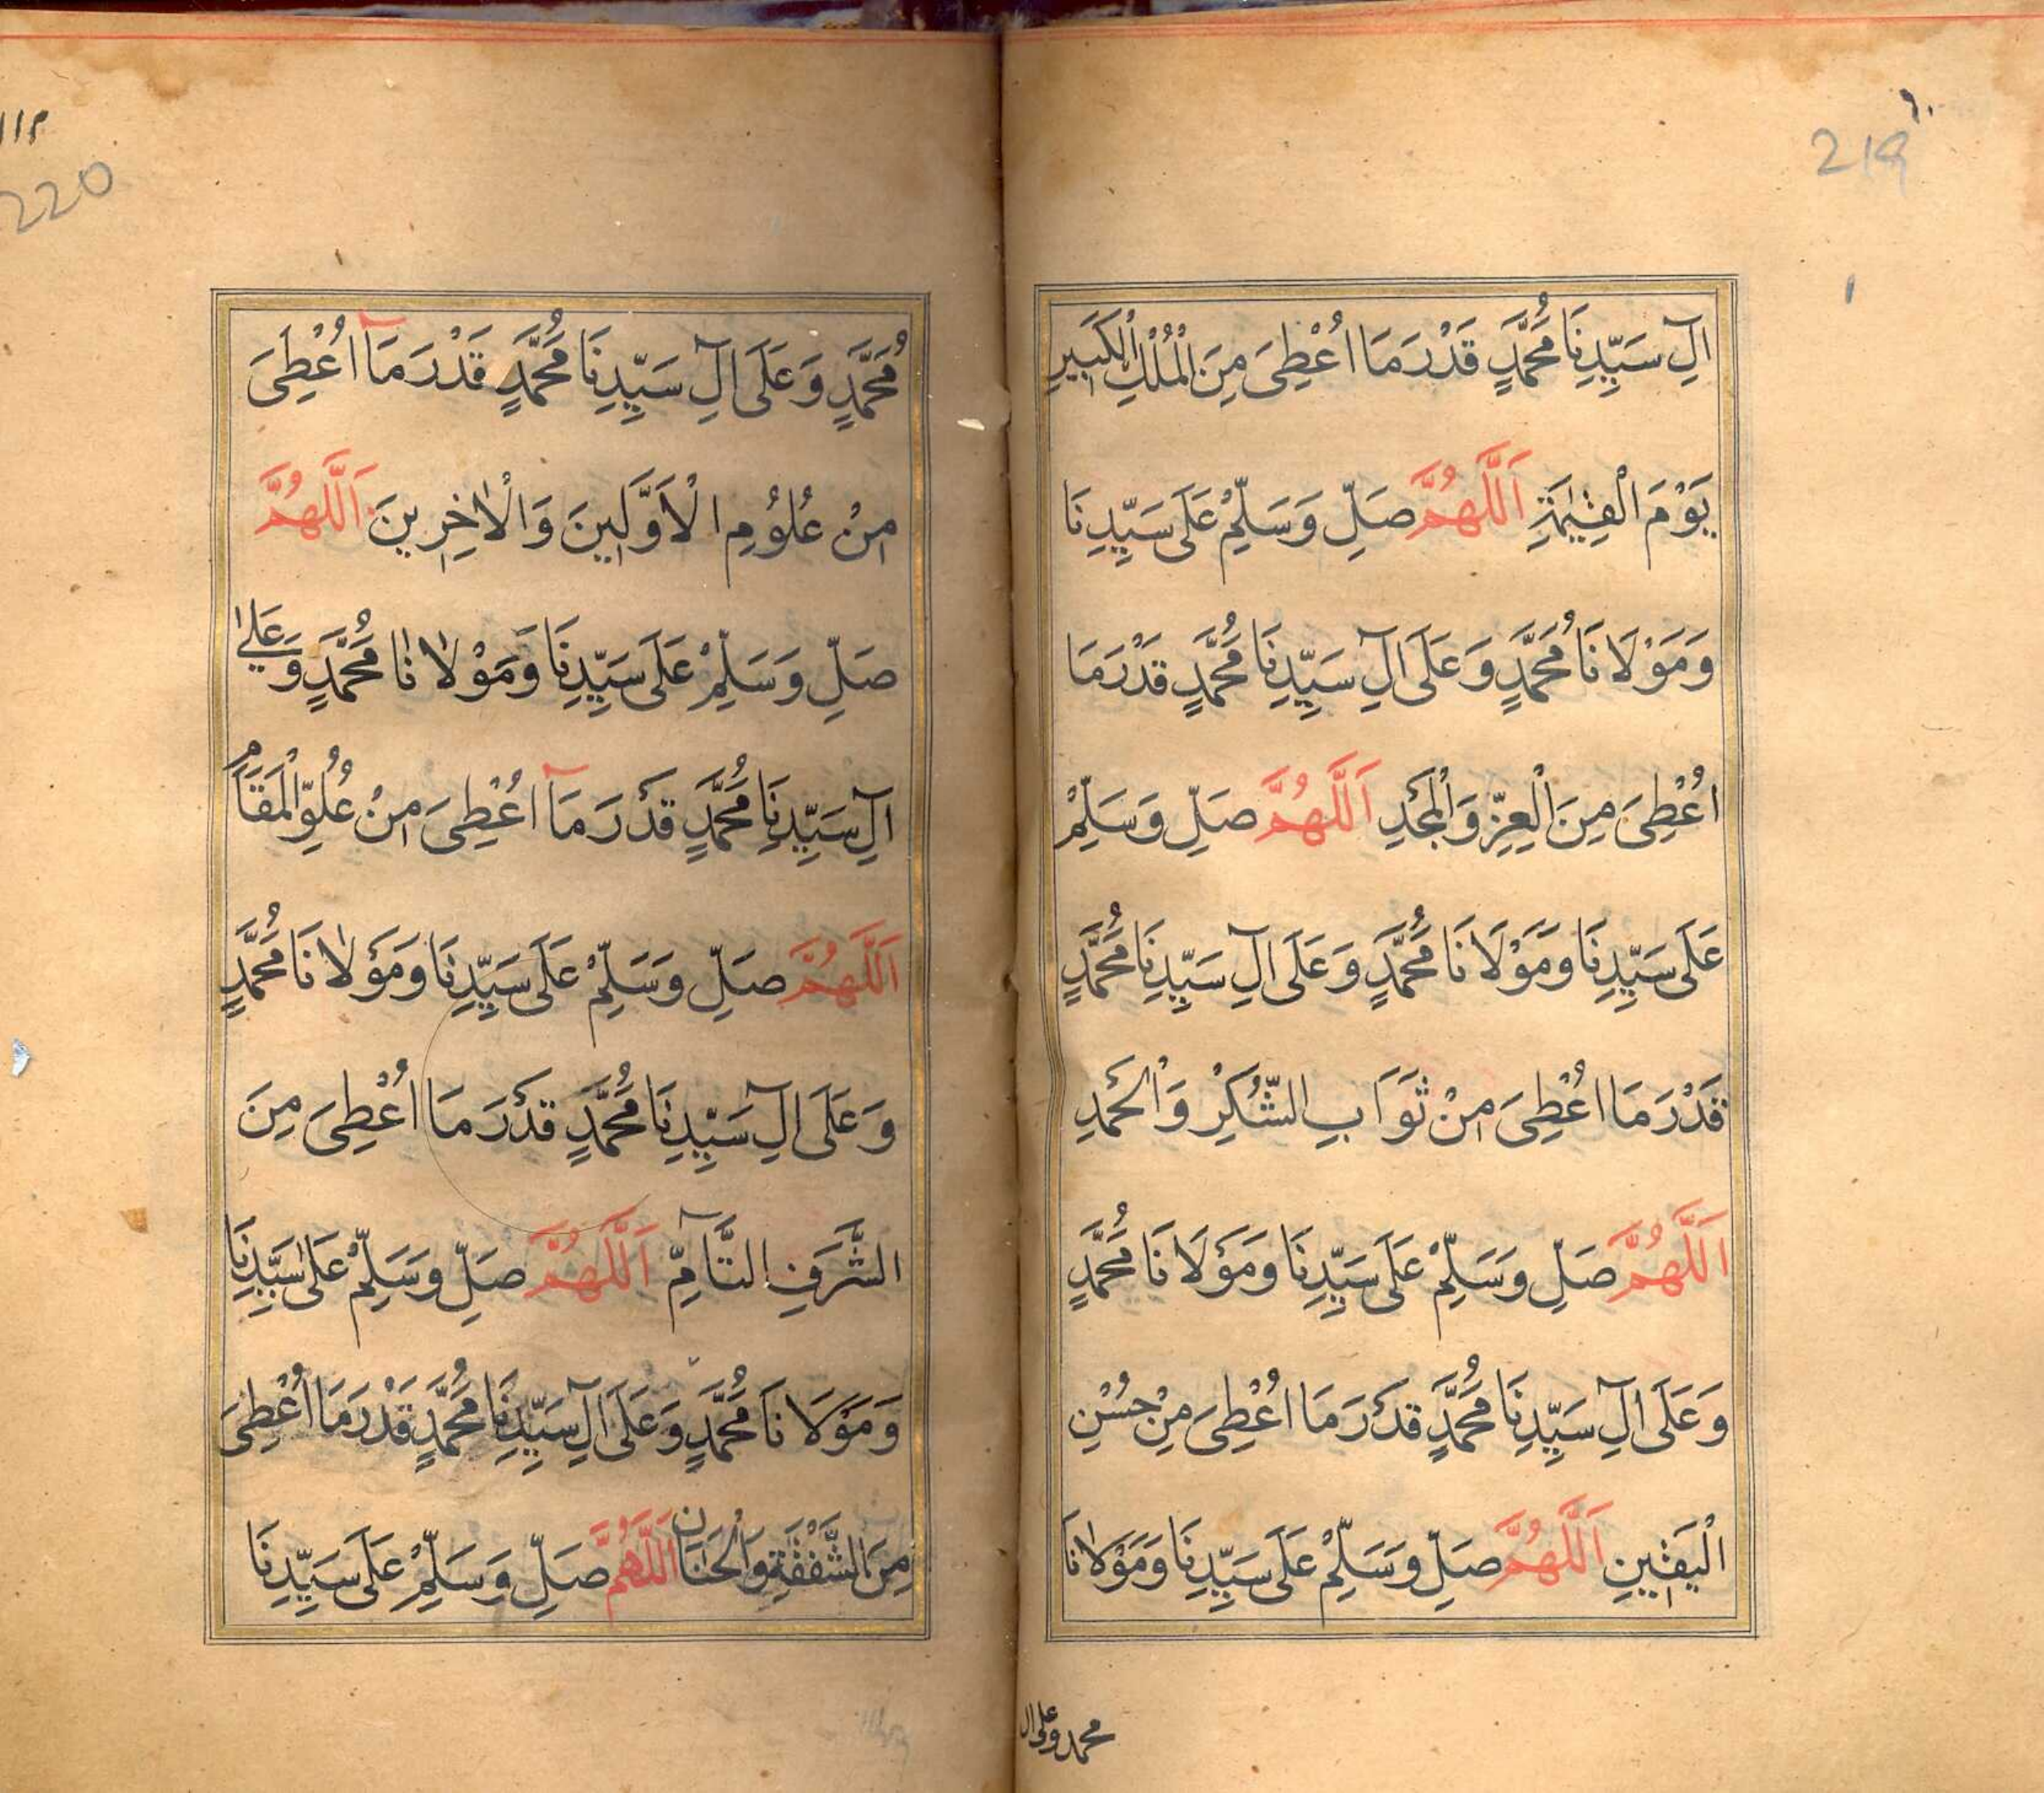 ٩٠
219
اٰلِ سَيِّدِنَا مُحَمَّدٍ قَدْرَ مَا اُعْطِىَ مِنَ الْمُلْكِ الْكَبِيرِ
يَوْمَ الْقِيٰمَةِ اَللّٰهُمَّ صَلِّ وَسَلِّمْ عَلَى سَيِّدِنَا
وَمَوْلَانَا مُحَمَّدٍ وَعَلَى اٰلِ سَيِّدِنَا مُحَمَّدٍ قَدْرَ مَا
اُعْطِىَ مِنَ الْعِزِّ وَالْمَجْدِ اَللّٰهُمَّ صَلِّ وَسَلِّمْ
عَلَى سَيِّدِنَا وَمَوْلَانَا مُحَمَّدٍ وَعَلَى اٰلِ سَيِّدِنَا مُحَمَّدٍ
قَدْرَ مَا اُعْطِىَ مِنْ ثَوَابِ الشُّكْرِ وَالْحَمْدِ
اَللّٰهُمَّ صَلِّ وَسَلِّمْ عَلَى سَيِّدِنَا وَمَوْلَانَا مُحَمَّدٍ
وَعَلَى اٰلِ سَيِّدِنَا مُحَمَّدٍ قَدْرَ مَا اُعْطِىَ مِنْ حُسْنِ
الْيَقِيْنِ اَللّٰهُمَّ صَلِّ وَسَلِّمْ عَلَى سَيِّدِنَا وَمَوْلَانَا
محمد وعلى ال
١١٢
220
مُحَمَّدٍ وَعَلَى اٰلِ سَيِّدِنَا مُحَمَّدٍ قَدْرَ مَآ اُعْطِىَ
مِنْ عُلُوْمِ الْاَوَّلِينَ وَالْاٰخِرِينَ اَللّٰهُمَّ
صَلِّ وَسَلِّمْ عَلَى سَيِّدِنَا وَمَوْلَانَا مُحَمَّدٍ وَعَلٰى
اٰلِ سَيِّدِنَا مُحَمَّدٍ قَدْرَ مَآ اُعْطِىَ مِنْ عُلُوِّ الْمَقَامِ
اَللّٰهُمَّ صَلِّ وَسَلِّمْ عَلَى سَيِّدِنَا وَمَوْلَانَا مُحَمَّدٍ
وَعَلَى اٰلِ سَيِّدِنَا مُحَمَّدٍ قَدْرَ مَا اُعْطِىَ مِنَ
الشَّرَفِ التَّآمِّ اَللّٰهُمَّ صَلِّ وَسَلِّمْ عَلٰى سَيِّدِنَا
وَمَوْلَانَا مُحَمَّدٍ وَعَلَى اٰلِ سَيِّدِنَا مُحَمَّدٍ قَدْرَ مَا اُعْطِىَ
مِنَ الشَّفْقَةِ وَالْحَنَانِ اَللّٰهُمَّ صَلِّ وَسَلِّمْ عَلَى سَيِّدِنَا